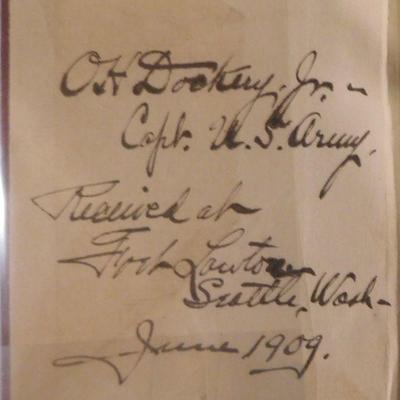 OH Dockery, Jr –
Capt. U.S. Army.
Received at
Fort Lawton
Seattle, Wash –
June 1909.